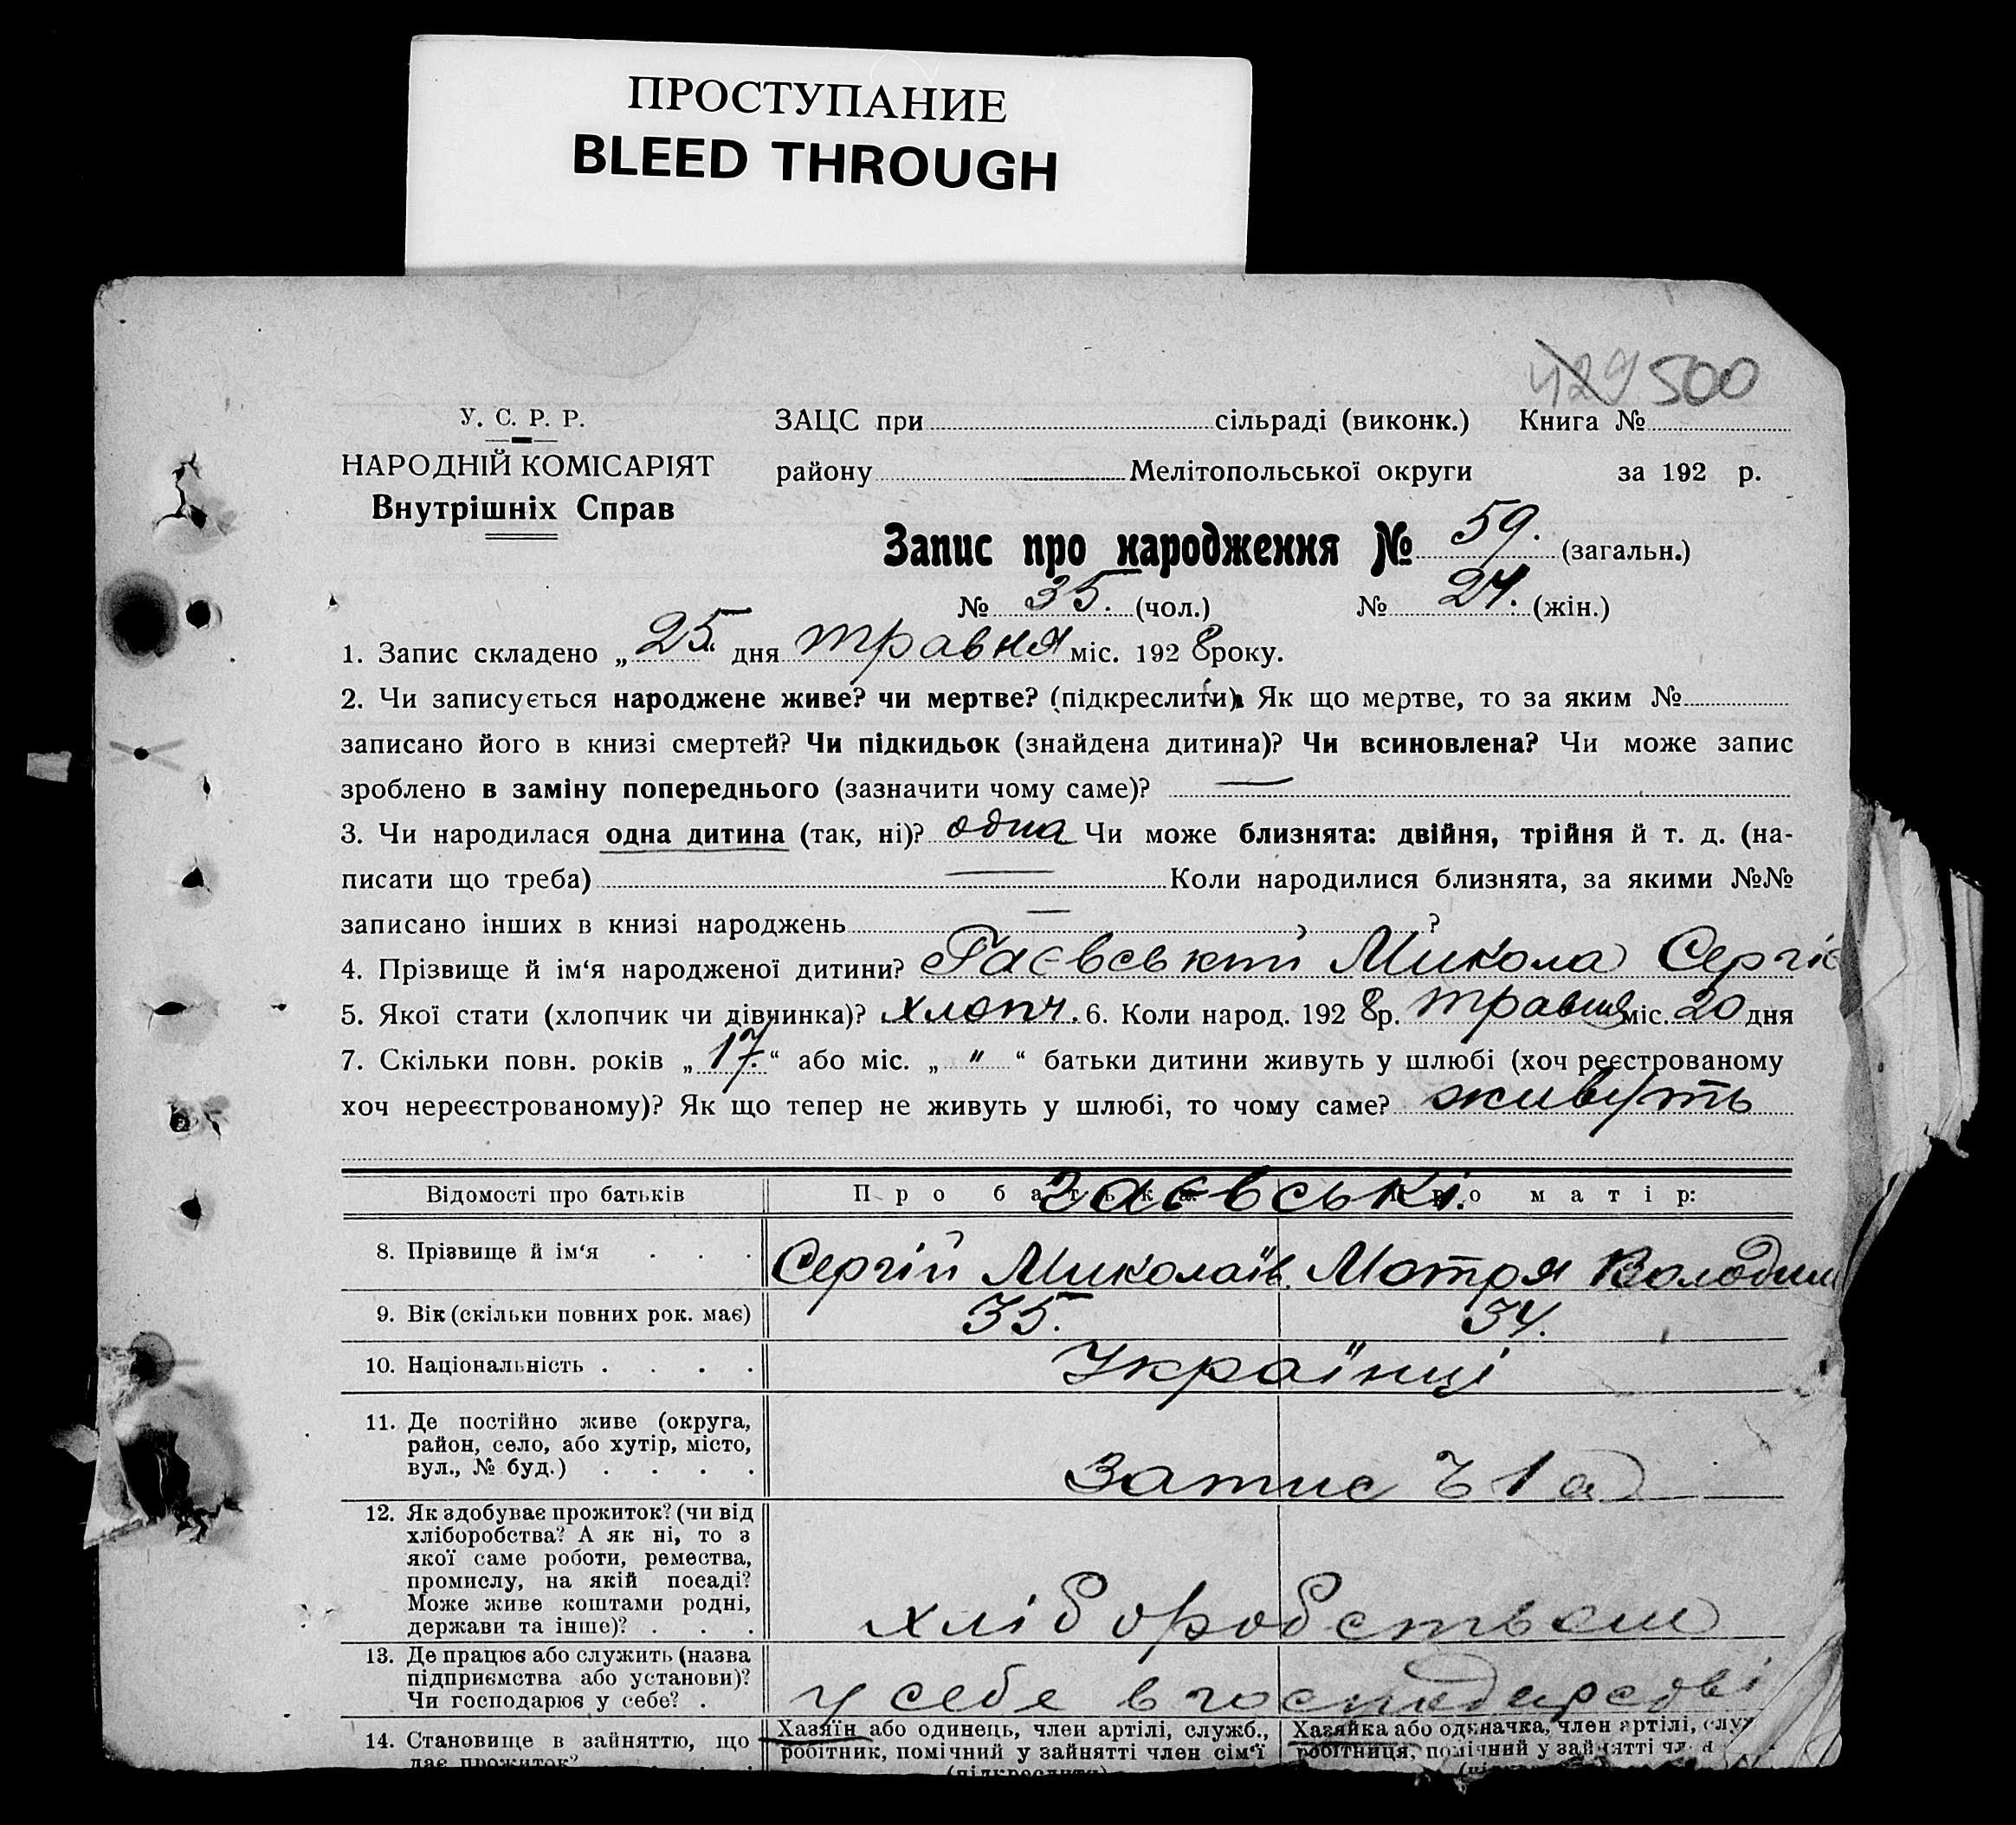 ПРОСТУПАНИЕ
BLEED THROUGH
429 500
У. С. Р. Р.
НАРОДНІЙ КОМІСАРІЯТ
Внутрішніх Справ
ЗАЦС при сільраді (виконк.) Книга №
району Мелітопольської округи за 192 р.
Запис про народження № 59. (загальн.)
№ 35. (чол.) № 24. (жін.)
1. Запис складено „ 25 “ дня травня міс. 192 8 року.
2. Чи записується народжене живе? чи мертве? (підкреслити). Як що мертве, то за яким №
записано його в книзі смертей? Чи підкидьок (знайдена дитина)? Чи всиновлена? Чи може запис
зроблено в заміну попереднього (зазначити чому саме)? —
3. Чи народилася одна дитина (так, ні)? одна Чи може близнята: двійня, трійня й т. д. (на-
писати що треба) — Коли народилися близнята, за якими №№
записано інших в книзі народжень — ?
4. Прізвище й ім‘я народженої дитини? Гаєвський Микола Сергіє
5. Якої стати (хлопчик чи дівчинка)? хлопч. 6. Коли народ. 192 8 р. травня міс. 20 дня
7. Скільки повн. років „ 17. “ або міс. „ " “ батьки дитини живуть у шлюбі (хоч реєстрованому
хоч нереєстрованому)? Як що тепер не живуть у шлюбі, то чому саме? живуть
Відомості про батьків Про батька: Про матір:
Гаєвські.
8. Прізвище й ім‘я . . . Сергій Миколаїв. Мотря Володим
9. Вік (скільки повних рок. має) 35. 34.
10. Національність . . . . Українці
11. Де постійно живе (округа,
район, село, або хутір, місто,
вул., № буд.) . . . .
12. Як здобуває прожиток? (чи від
хліборобства? А як ні, то з
якої саме роботи, ремества,
промислу, на якій посаді?
Може живе коштами родні,
держави та інше)? . . . хліборобством
13. Де працює або служить (назва
підприємства або установи)?
Чи господарює у себе? . у себе в господарстві
14. Становище в зайняттю, що
дає прожиток?
Хазяїн або одинець, член артілі, служб.,
робітник, помічний у зайнятті член сім‘ї
(підкреслити)
Хазяйка або одиначка, член артілі, служ
робітниця, помічний у зайнятті чл